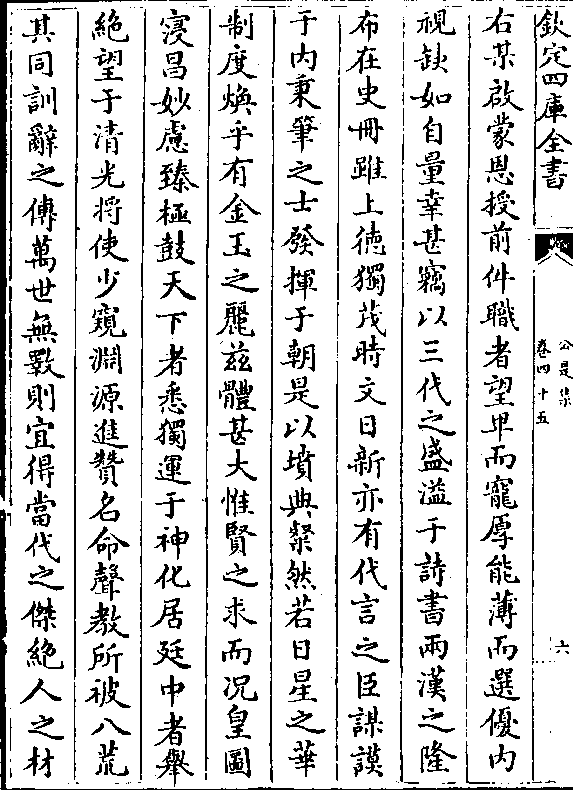 欽定四庫全書
公是集
卷四十五
六
右某啟蒙恩授前件職者望卑而寵厚能薄而選優內
視缺如自量幸甚竊以三代之盛溢于詩書兩漢之隆
布在史冊雖上徳獨茂時文日新亦有代言之臣謀謨
于内秉筆之士發揮于朝是以墳典粲然若日星之華
制度煥乎有金玉之麗兹體甚大惟賢之求而况皇圖
寖昌妙慮臻極鼓天下者悉獨運于神化居廷中者舉
絶望于清光將使少窺淵源進贊名命聲教所被八荒
其同訓辭之傳萬世無斁則宜得當代之傑絶人之材